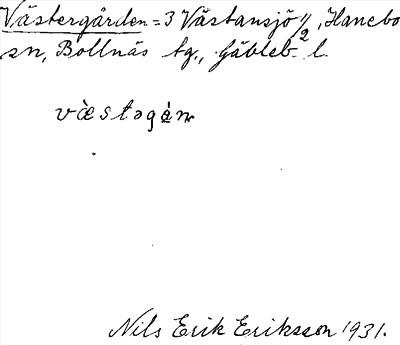 Västergården = 3 Västansjö 1/2, Hanebo
sn, Bollnäs tg., Gävleb. l.
væ̀stəgɑ́n
Nils Erik Eriksson 1931.